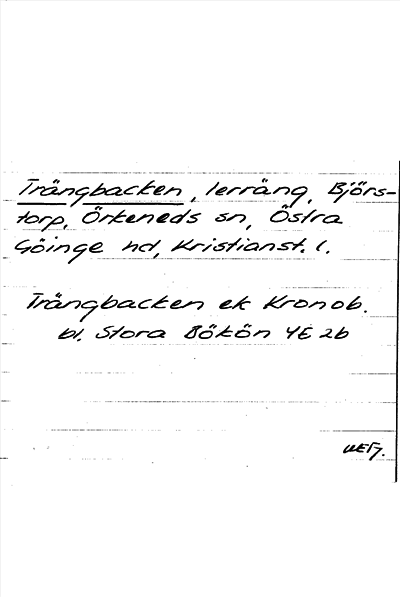 Trängbacken, lerräng, Björs-
torp, Örkeneds sn, Östra
Göinge hd, Kristianst. l.
Trängbacken ek Kronob.
bl. Stora Bökön 4E 2b